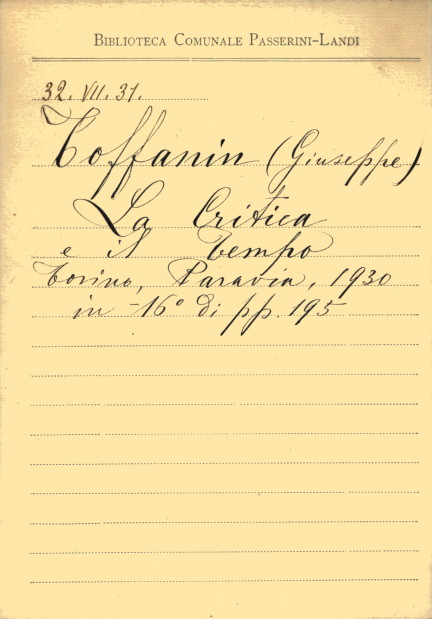 BIBLIOTECA COMUNALE PASSERINI-LANDI
32. VII. 31.
Toffanin (Giuseppe)
La Critica
e il tempo
Torino, Paravia, 1930
in -16° di pp. 195